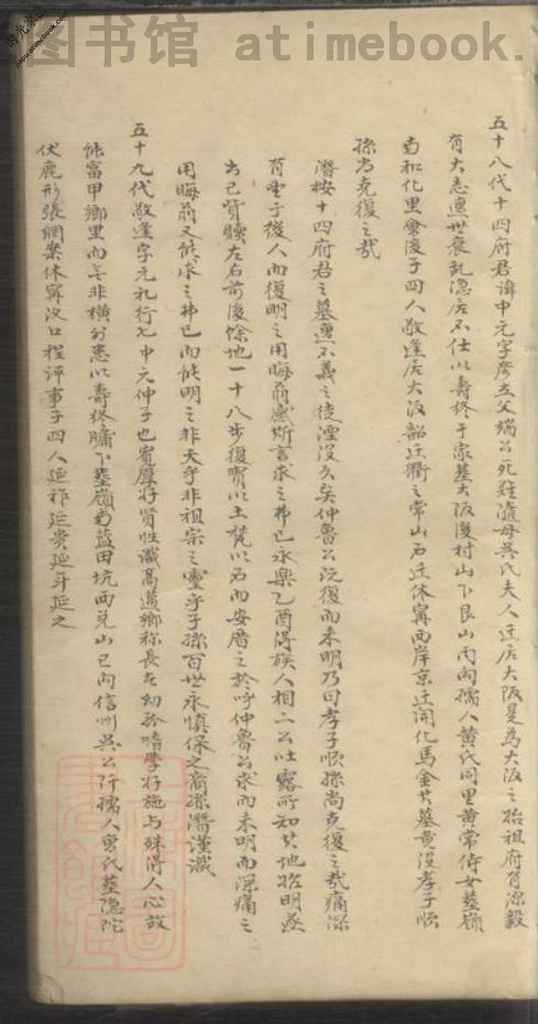 图书馆 atimebook.
五十八代十四府君諱中元字彦立父端公死難随母吳氏夫人迁居大阪是為大阪之始祖府君深毅
有大志遭世衰乱隐居不仕以壽终于家墓大阪後村山下艮山丙向孺人黄氏同里黄常侍女墓嶺
南和化里會後子四人敬逢居大阪韶迁衢之常山石迁休寧西岸京迁開化馬金其墓竟没孝子順
孫尚克復之哉
潛按十四府君之墓遭不義之徒湮没久矣仲魯公沅復而未明乃曰孝子順孫尚克復之哉痛深
有望于後人而復明之用晦前感斯言求之弗已永樂乙酉得族人相二公吐露所知其地始明
亟出己貲贖左右前後餘地一十八步復實以土甃以石而安厝之於呼仲魯公求而未明而深痛之
用晦前又能求之弗已而能明之非天乎非祖宗之靈乎子孫百世永慎保之裔孫潛谨識
五十九代敬逢字元礼行七中元仲子也寬厚好賢性識高邁鄉称長者幼孤嗜學好施与殊得人心故
能富甲鄉里而無非横分患以壽终墉下墓嶺南藍田坑西兑山已向信州吳公阡孺人曹氏墓隐陀
伏鹿形張網案休寧汉口程评事子四人延祚延贵延牙延之